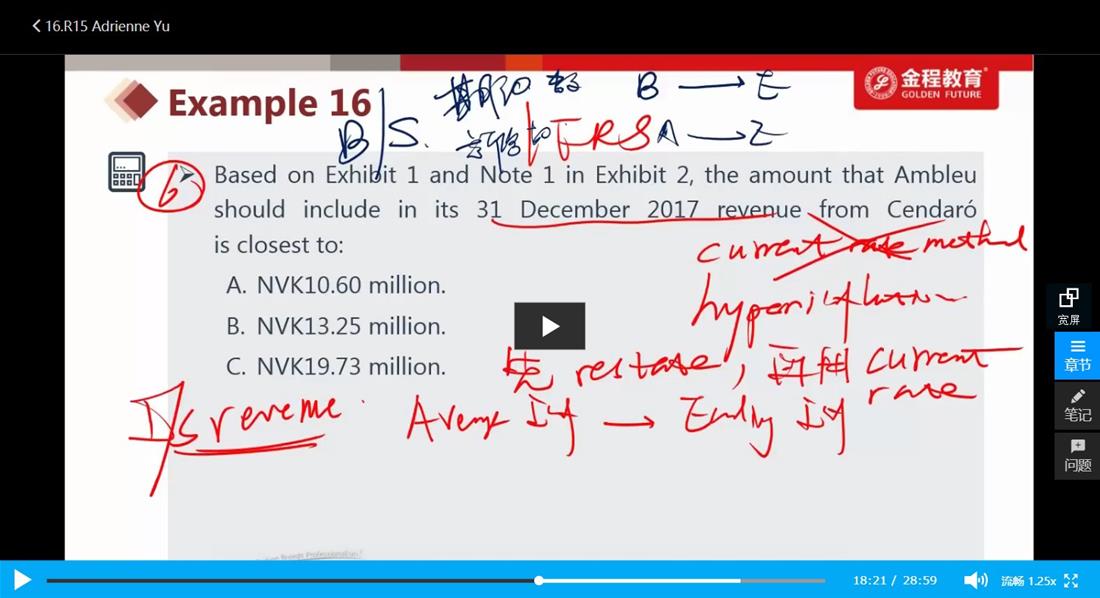 16.R15 Adrienne Yu
金程教育®
GOLDEN FUTURE
Example 16
期初 数 B → E
B/S. IFRS A → E
6
Based on Exhibit 1 and Note 1 in Exhibit 2, the amount that Ambleu
should include in its 31 December 2017 revenue from Cendaró
is closest to:
current rate method
A. NVK10.60 million.
hyperinflation
B. NVK13.25 million.
C. NVK19.73 million.
先 restate, 再用 current
rate
I/S revenue.
Average 计 → Ending 计
宽屏
章节
笔记
问题
18:21 / 28:59
流畅 1.25x